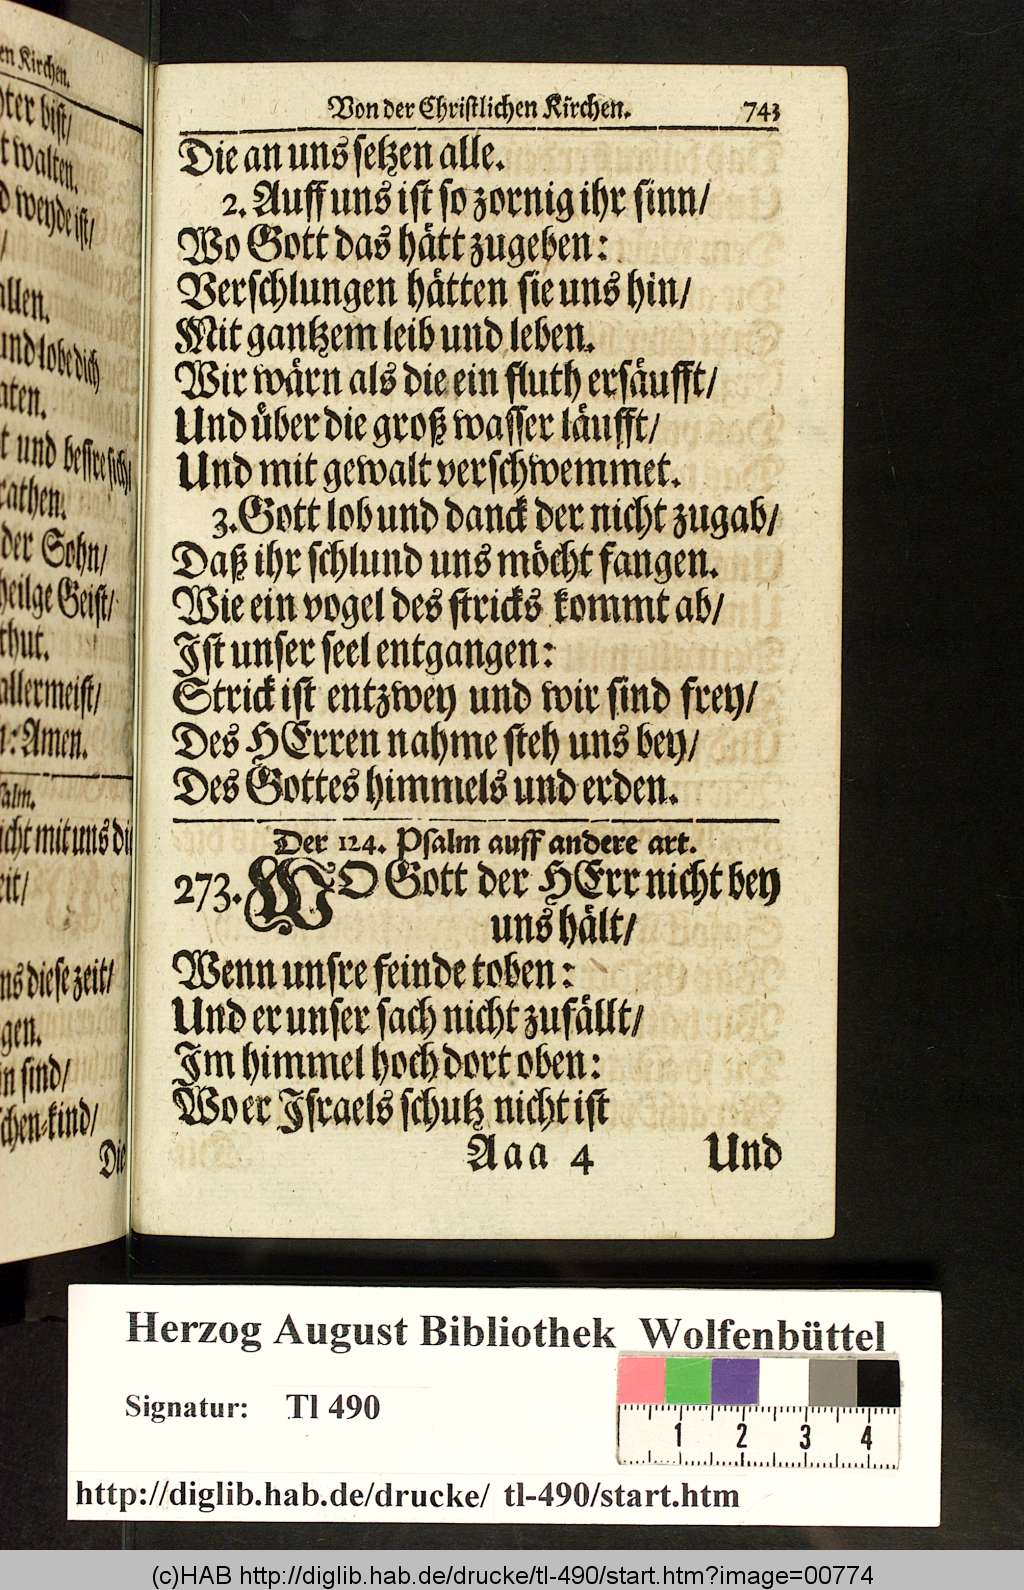 en Kirchen.
bist/
walten.
weyde ist/
allen.
und lobe dich
aten.
t und bessre sich/
rathen.
der Sohn/
heilge Geist/
thut.
allermeist/
: Amen.
salm.
icht mit uns die
eit/
ns diese zeit/
gen.
in sind/
schen-kind/
Die
Von der Christlichen Kirchen. 743
Die an uns setzen alle.
2. Auff uns ist so zornig ihr sinn/
Wo Gott das hätt zugeben:
Verschlungen hätten sie uns hin/
Mit gantzem leib und leben.
Wir wärn als die ein fluth ersäufft/
Und über die groß wasser läufft/
Und mit gewalt verschwemmet.
3. Gott lob und danck der nicht zugab/
Daß ihr schlund uns möcht fangen.
Wie ein vogel des stricks kommt ab/
Ist unser seel entgangen:
Strick ist entzwey und wir sind frey/
Des HErren nahme steh uns bey/
Des Gottes himmels und erden.
Der 124. Psalm auff andere art.
273. WO Gott der HErr nicht bey
uns hält/
Wenn unsre feinde toben:
Und er unser sach nicht zufällt/
Im himmel hoch dort oben:
Wo er Israels schutz nicht ist
Aaa 4 Und
Herzog August Bibliothek Wolfenbüttel
Signatur: Tl 490
1 2 3 4
http://diglib.hab.de/drucke/ tl-490/start.htm
(c)HAB http://diglib.hab.de/drucke/tl-490/start.htm?image=00774